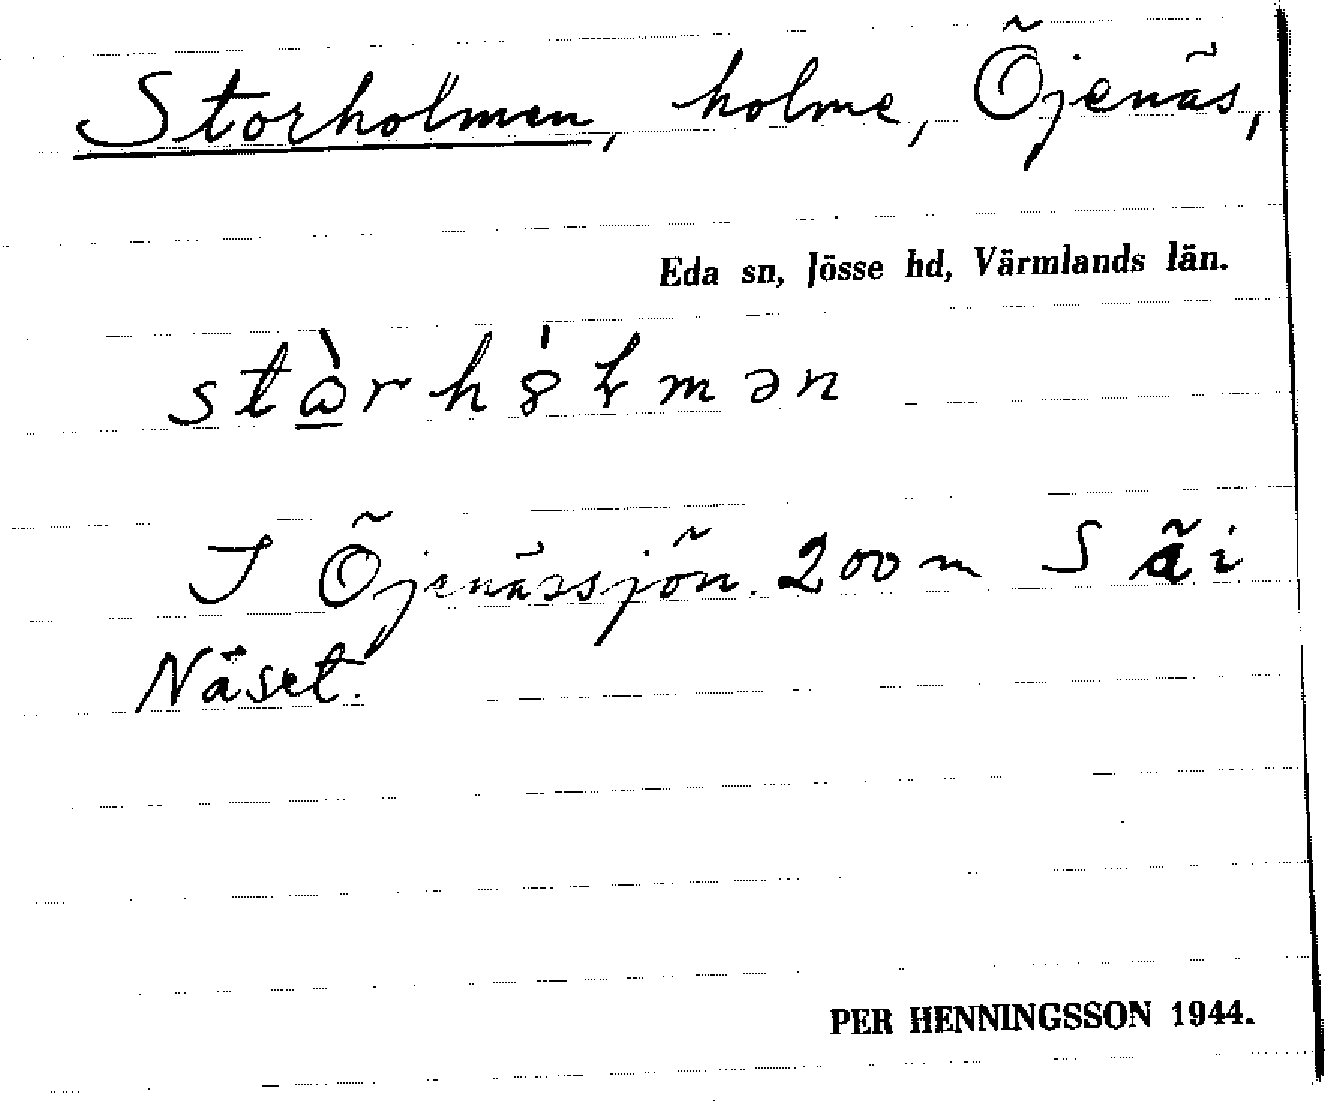 Storholmen, holme, Öjenäs,
Eda sn, Jösse hd, Värmlands län.
I Öjenässjön. 200 m S
Näset.
PER HENNINGSSON 1944.